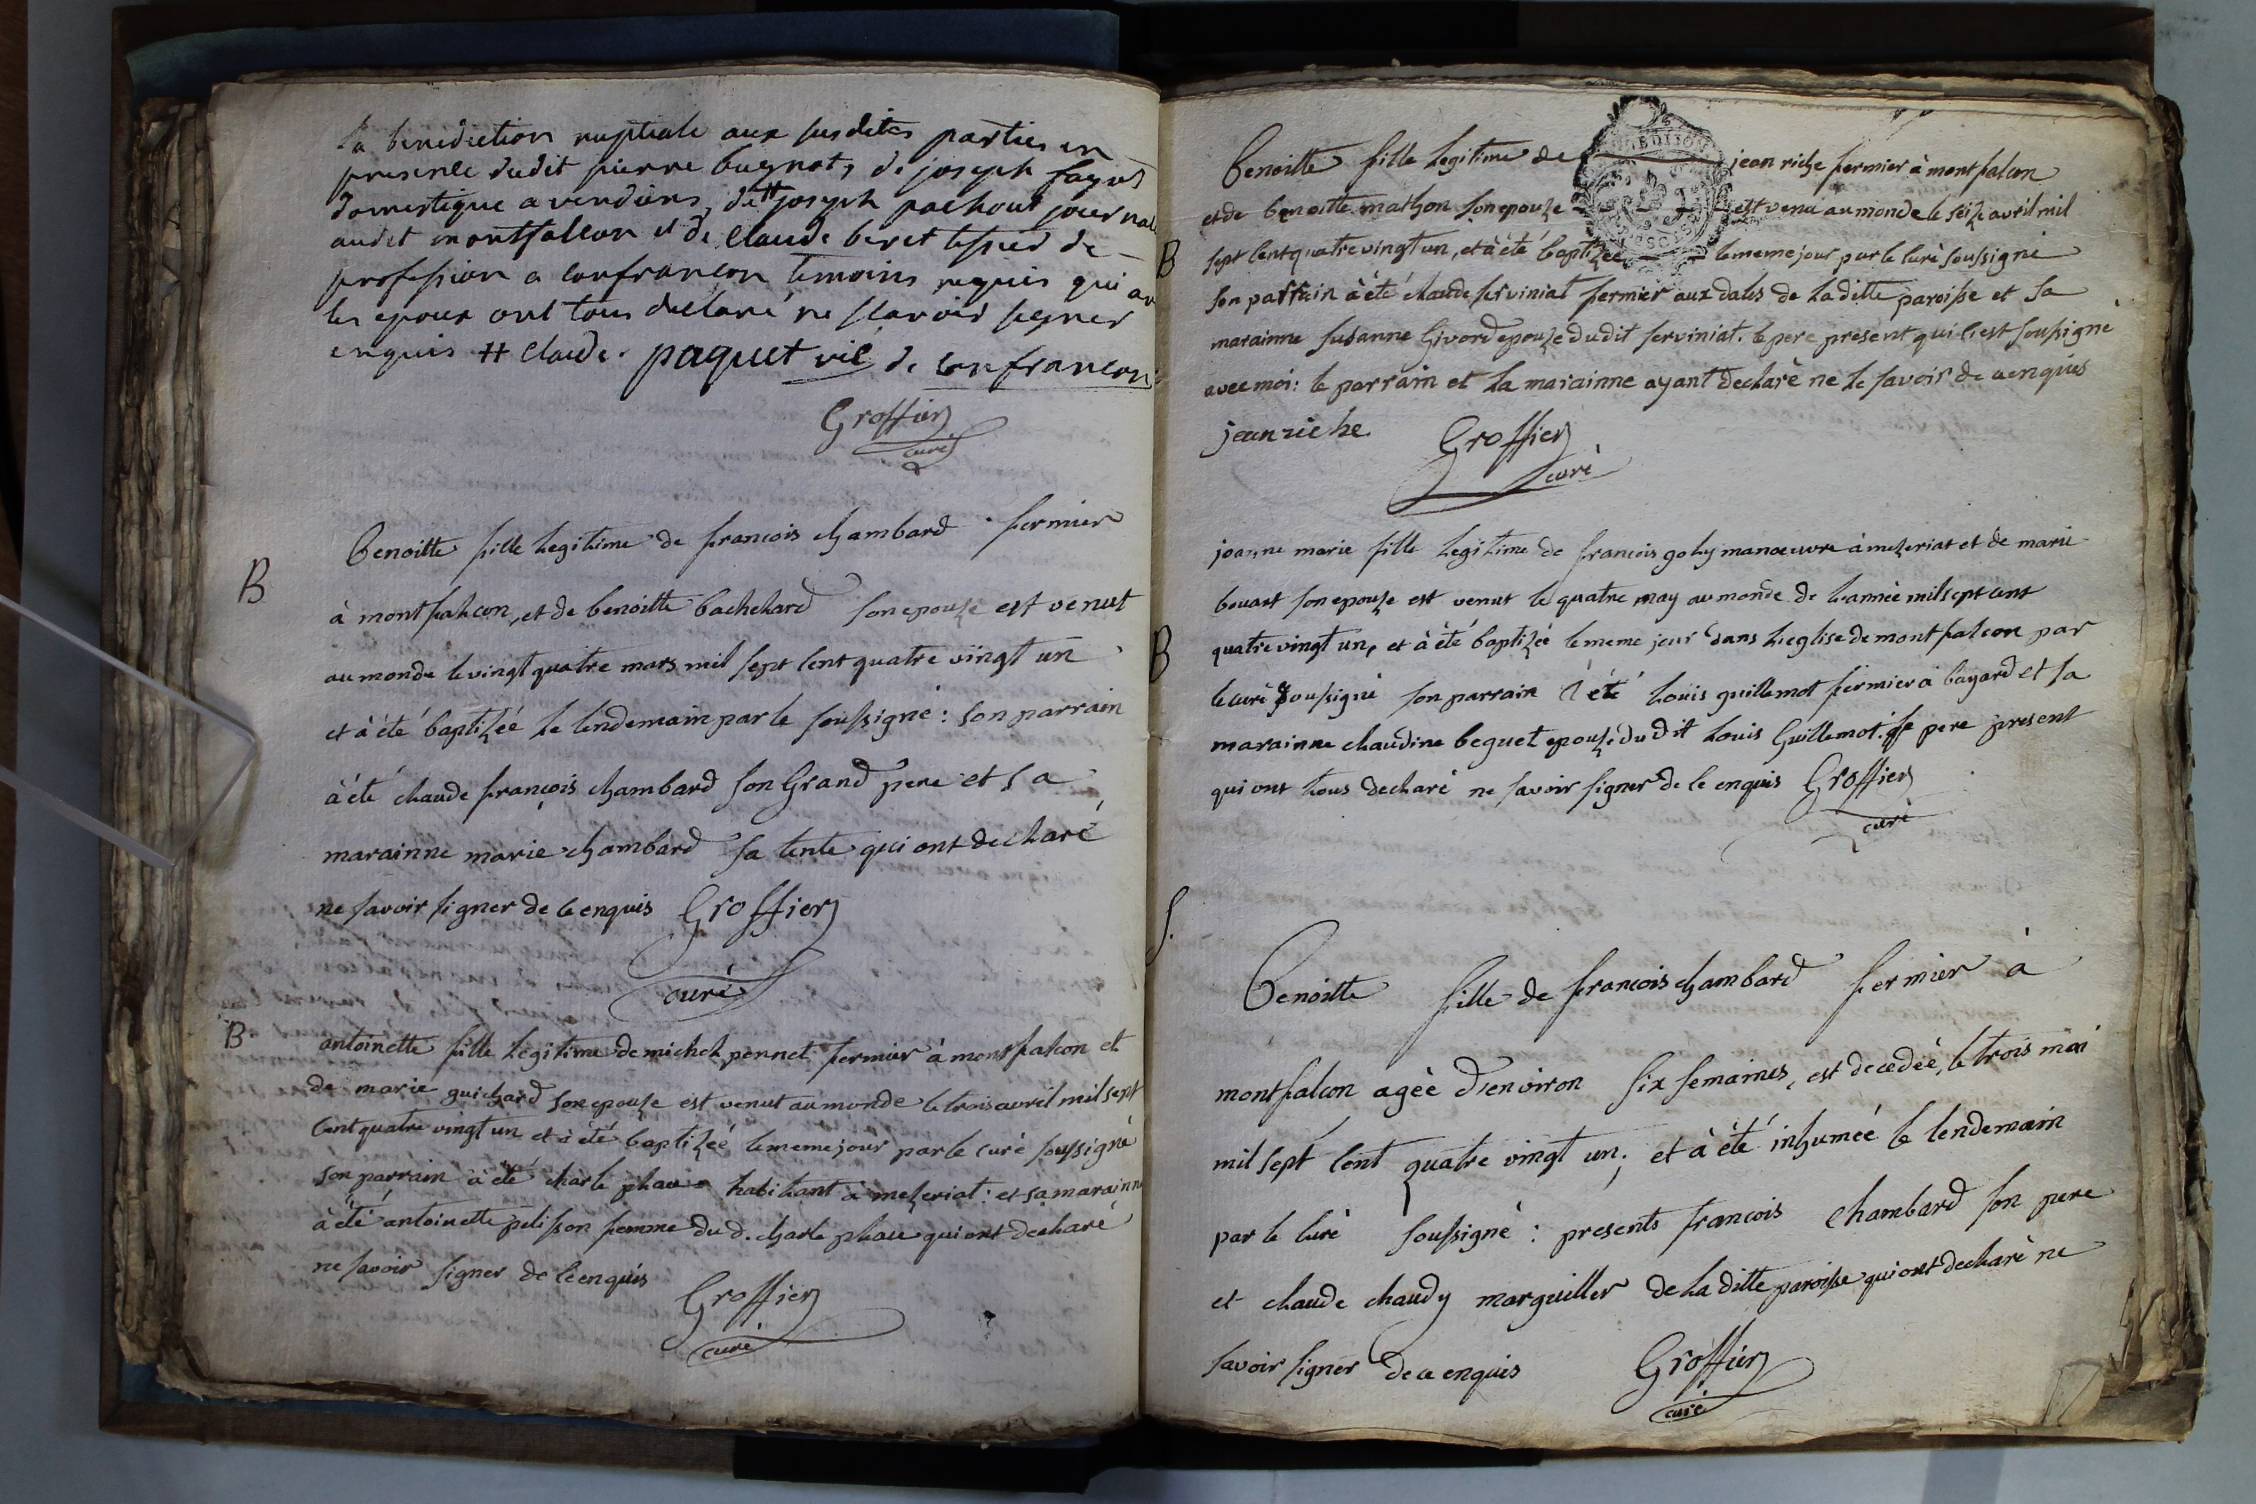 la benediction nuptiale aux susdites parties en
presence dudit pierre bugnot, de joseph fagns
domestique a vendeins, de # joseph pachout journal
audit montfalcon et de claude beret tissied de
profession a confrançon temoins requis qui av
les epoux ont tous declaré ne sçavoir signer
enquis # claude. paquet vic de confrançon
Groffier
curé
B
benoitte fille legitime de francois chambard fermier
à montfalcon, et de benoitte bachelard son epouse est venut
au monde le vingt quatre mars mil sept cent quatre vingt un
et à été baptizéé le lendemain par le soussigné: son parrain
à été claude françois chambard son Grand pere et sa
marainne marie chambard sa tente qui ont declaré
ne savoir signer de ce enquis Groffier
curé
B
antoinette fille legitime de michel pennet fermier à montfalcon et
de marie guichard son epouse est venut au monde le trois avril mil sept
cent quatre vingt un et à été baptizéé le meme jour par le curé soussigné
son parrain à été charle phau habitant à mezeriat: et sa marainn
à été antoinette pelisson femme dud. charle phau qui ont declaré
ne savoir signer de ce enquis
Groffier
curé
benoitte fille legitime de jean riche fermier à montfalcon
et de benoitte mathon son epouze est venu au monde le seize avril mil
B
sept cent quatre vingt un, et à été baptizée le meme jour par le curé soussigné
son parrain à été claude serviniat fermier aux dales de la ditte paroisse et sa
marainne susanne Givord epouze dudit serviniat. le pere present qui c'est soussigné
avec moi: le parrain et la marainne ayant declaré ne le savoir de ce enquis
jean riche Groffier
curé
joanne marie fille legitime de françois goly manoeuvre à mezeriat et de marie
bouart son epouze est venut le quatre may au monde de l'année mil sept cent
B
quatre vingt un, et à été baptizéé le meme jour dans l'eglise de montfalcon par
le curé soussigné son parrain à été louis guillemot fermier à bayard et sa
marainne claudine beguet epouze dudit louis Guillemot. le pere present
qui ont tous declaré ne savoir signer de ce enquis Groffier
curé
S.
Benoitte fille de francois chambard fermier à
montfalcon agèe d'environ six semaines, est decedèe, le trois mai
mil sept cent quatre vingt un; et à été inhuméé le lendemain
par le curé soussigné: presents francois chambard son pere
et claude chaudy marguiller de la ditte paroisse qui ont declaré ne
savoir signer de ce enquis Groffier
curé